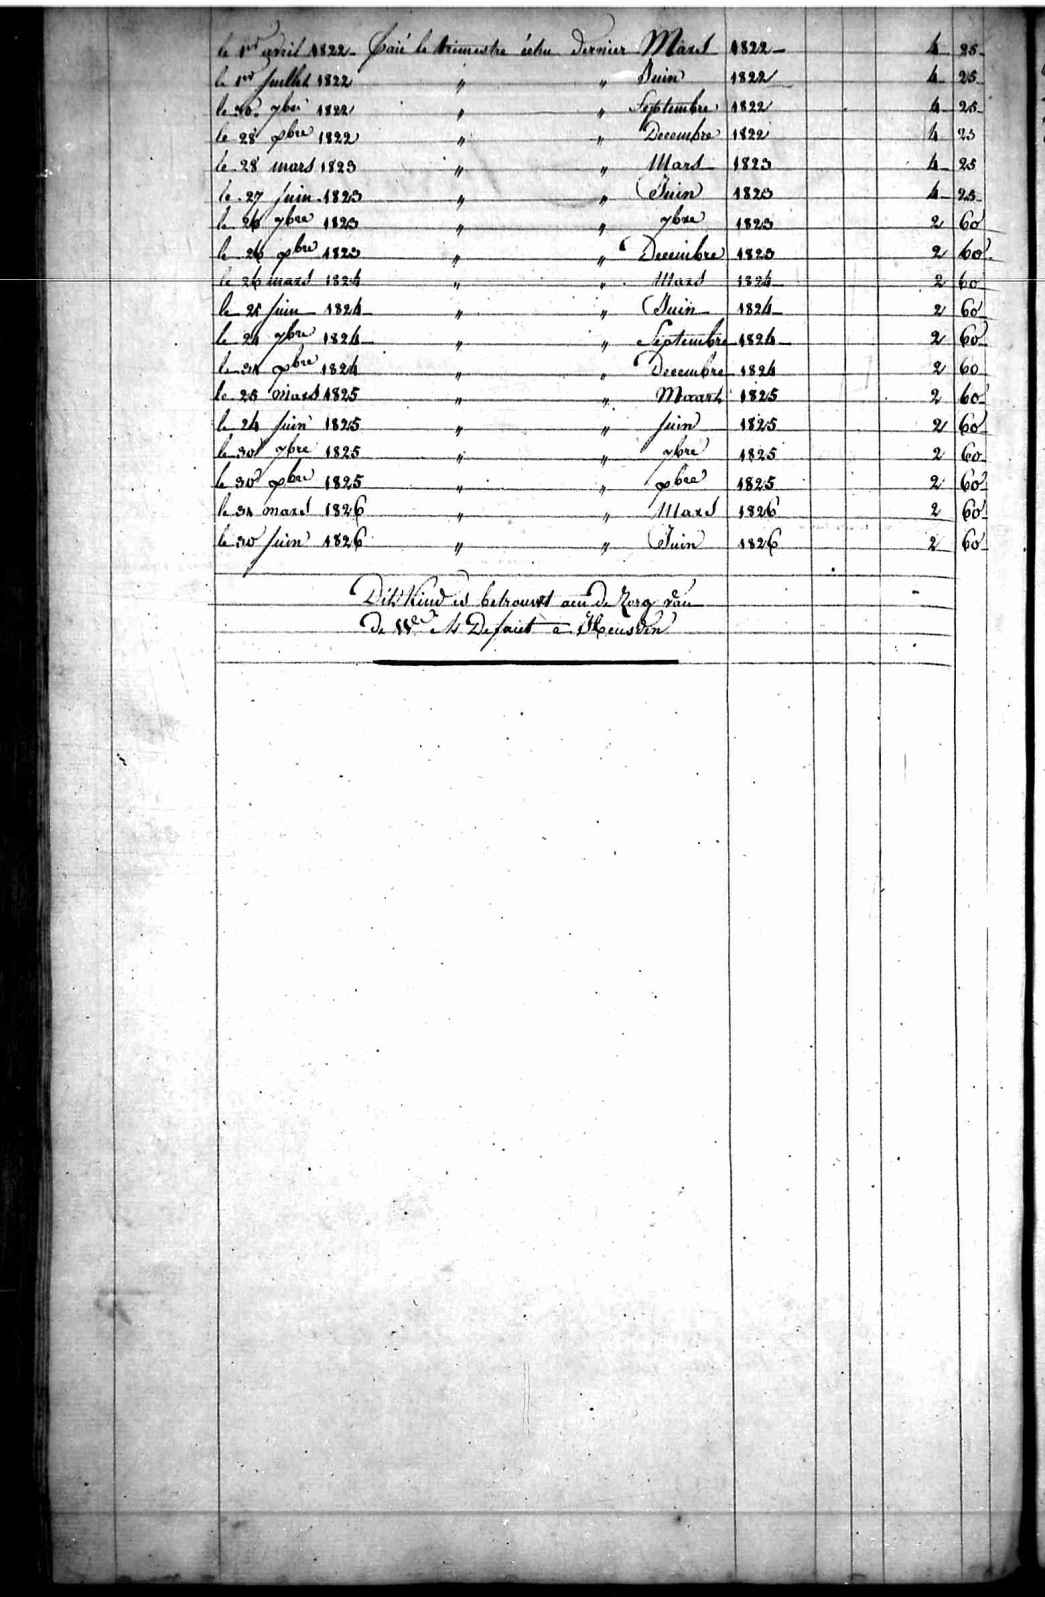 le 1er avril 1822 - Paié le trimestre échu dernier Mars 1822 - 4 25
le 1er Juillet 1822 " " Juin 1822 4 25
le 30 7bre 1822 " " Septembre 1822 4 25
le 28 xbre 1822 " " Decembre 1822 4 25
le 28 mars 1823 " " Mars 1823 4 25
le 27 Juin 1823 " " Juin 1823 4 25
le 26 7bre 1823 " " 7bre 1823 2 60
le 26 xbre 1823 " " Decembre 1823 2 60
le 26 mars 1824 " " Mars 1824 2 60
le 25 Juin 1824 " " Juin 1824 2 60
le 24 7bre 1824 " " Septembre 1824 2 60
le 31 xbre 1824 " " Decembre 1824 2 60
le 25 mars 1825 " " Maart 1825 2 60
le 24 Juin 1825 " " Juin 1825 2 60
le 30 7bre 1825 " " 7bre 1825 2 60
le 30 xbre 1825 " " xbre 1825 2 60
le 31 mars 1826 " " Mars 1826 2 60
le 30 Juin 1826 " " Juin 1826 2 60
Dit Kind is betrouwt aen de Zorg van
de Wed. Defaut a Heusden